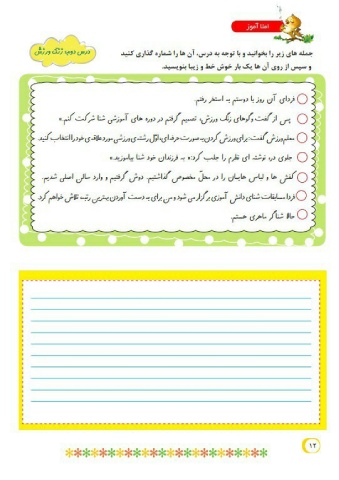 املا آموز
درس دوم: زنگ ورزش
جمله های زیر را بخوانید و با توجه به درس، آن ها را شماره گذاری کنید
و سپس از روی آن ها یک بار خوش خط و زیبا بنویسید.
فردای آن روز با دوستم به استخر رفتم.
پس از گفت و گوهای زنگ ورزش، تصمیم گرفتم در دوره های آموزشی شنا شرکت کنم.
معلم ورزش گفت: برای ورزش کردن به صورت حرفه ای، اول رشته ی ورزشی مورد علاقه ی خود را انتخاب کنید.
جلوی در، نوشته ای نظرم را جلب کرد: « به فرزندان خود شنا بیاموزید.»
کفش ها و لباس هایمان را در محل مخصوص گذاشتیم. دوش گرفتیم و وارد سالن اصلی شدیم.
فردا مسابقات شنای دانش آموزی برگزار می شود و من برای به دست آوردن بهترین رتبه تلاش خواهم کرد.
حالا شناگر ماهری هستم.
۱۲